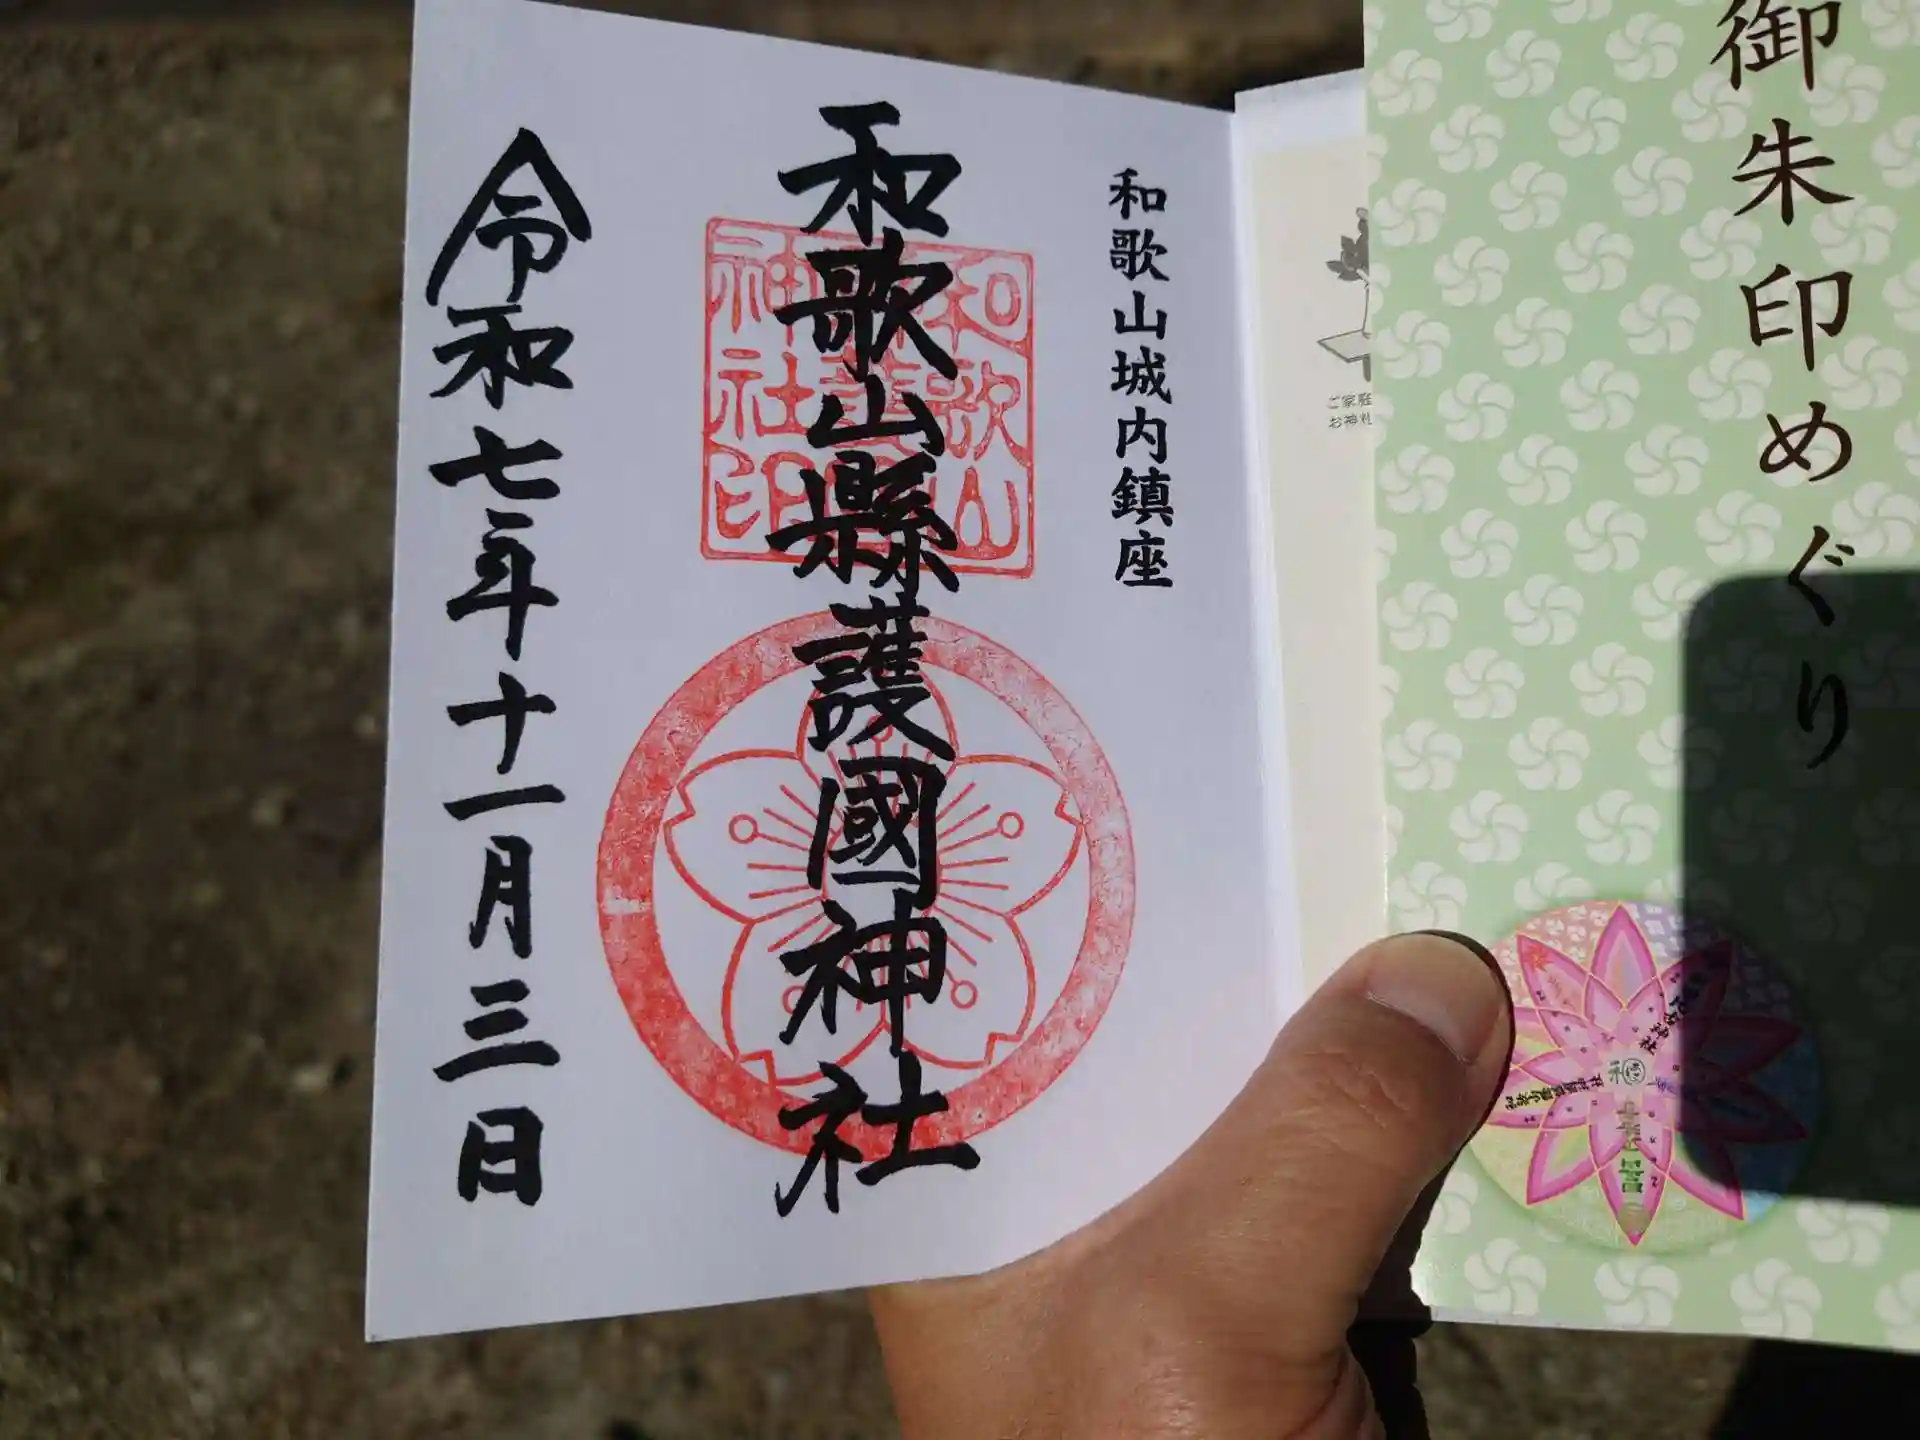 御朱印めぐり
和歌山城内鎮座
和歌山縣護國神社
令和七年十一月三日
和歌山
神社印
ご家庭
お神札
和歌山縣護國神社